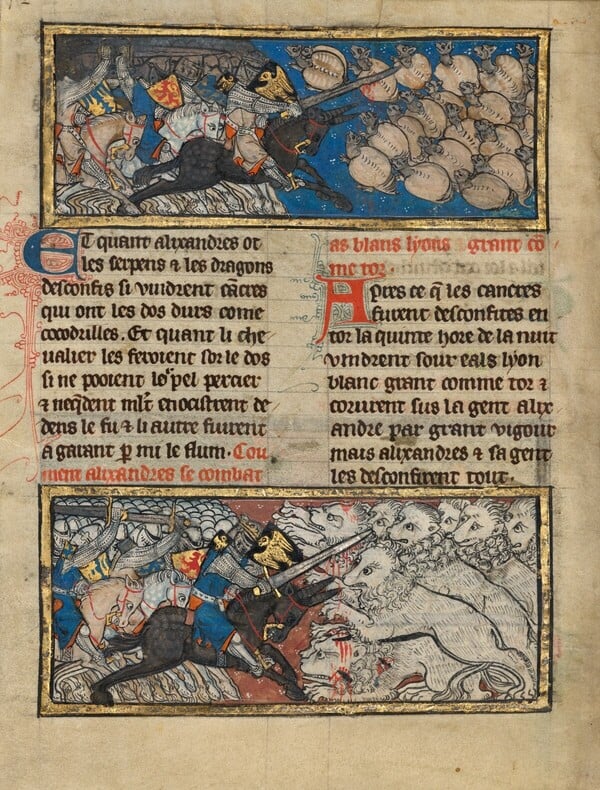 Et quant alixandres ot
les serpens & les dragons
desconfis si vindrent cacres
qui ont les dos durs come
cocodrilles. Et quant li che
ualier les feroient sor le dos
si ne pooient lor pel percier
& neqdent mlt enocistrent de
dens le fu & li autre fuirent
a garant p mi le flum. Cou
ment alixandres se combat
as blans lyons grant co
me tor.
Apres ce q les cancres
furent desconfites en
tor la quinte hore de la nuit
vindrent sour eals lyon
blanc grant comme tor &
corurent sus la gent alix
andre par grant vigour
mais alixandres & sa gent
les desconfirent tout.